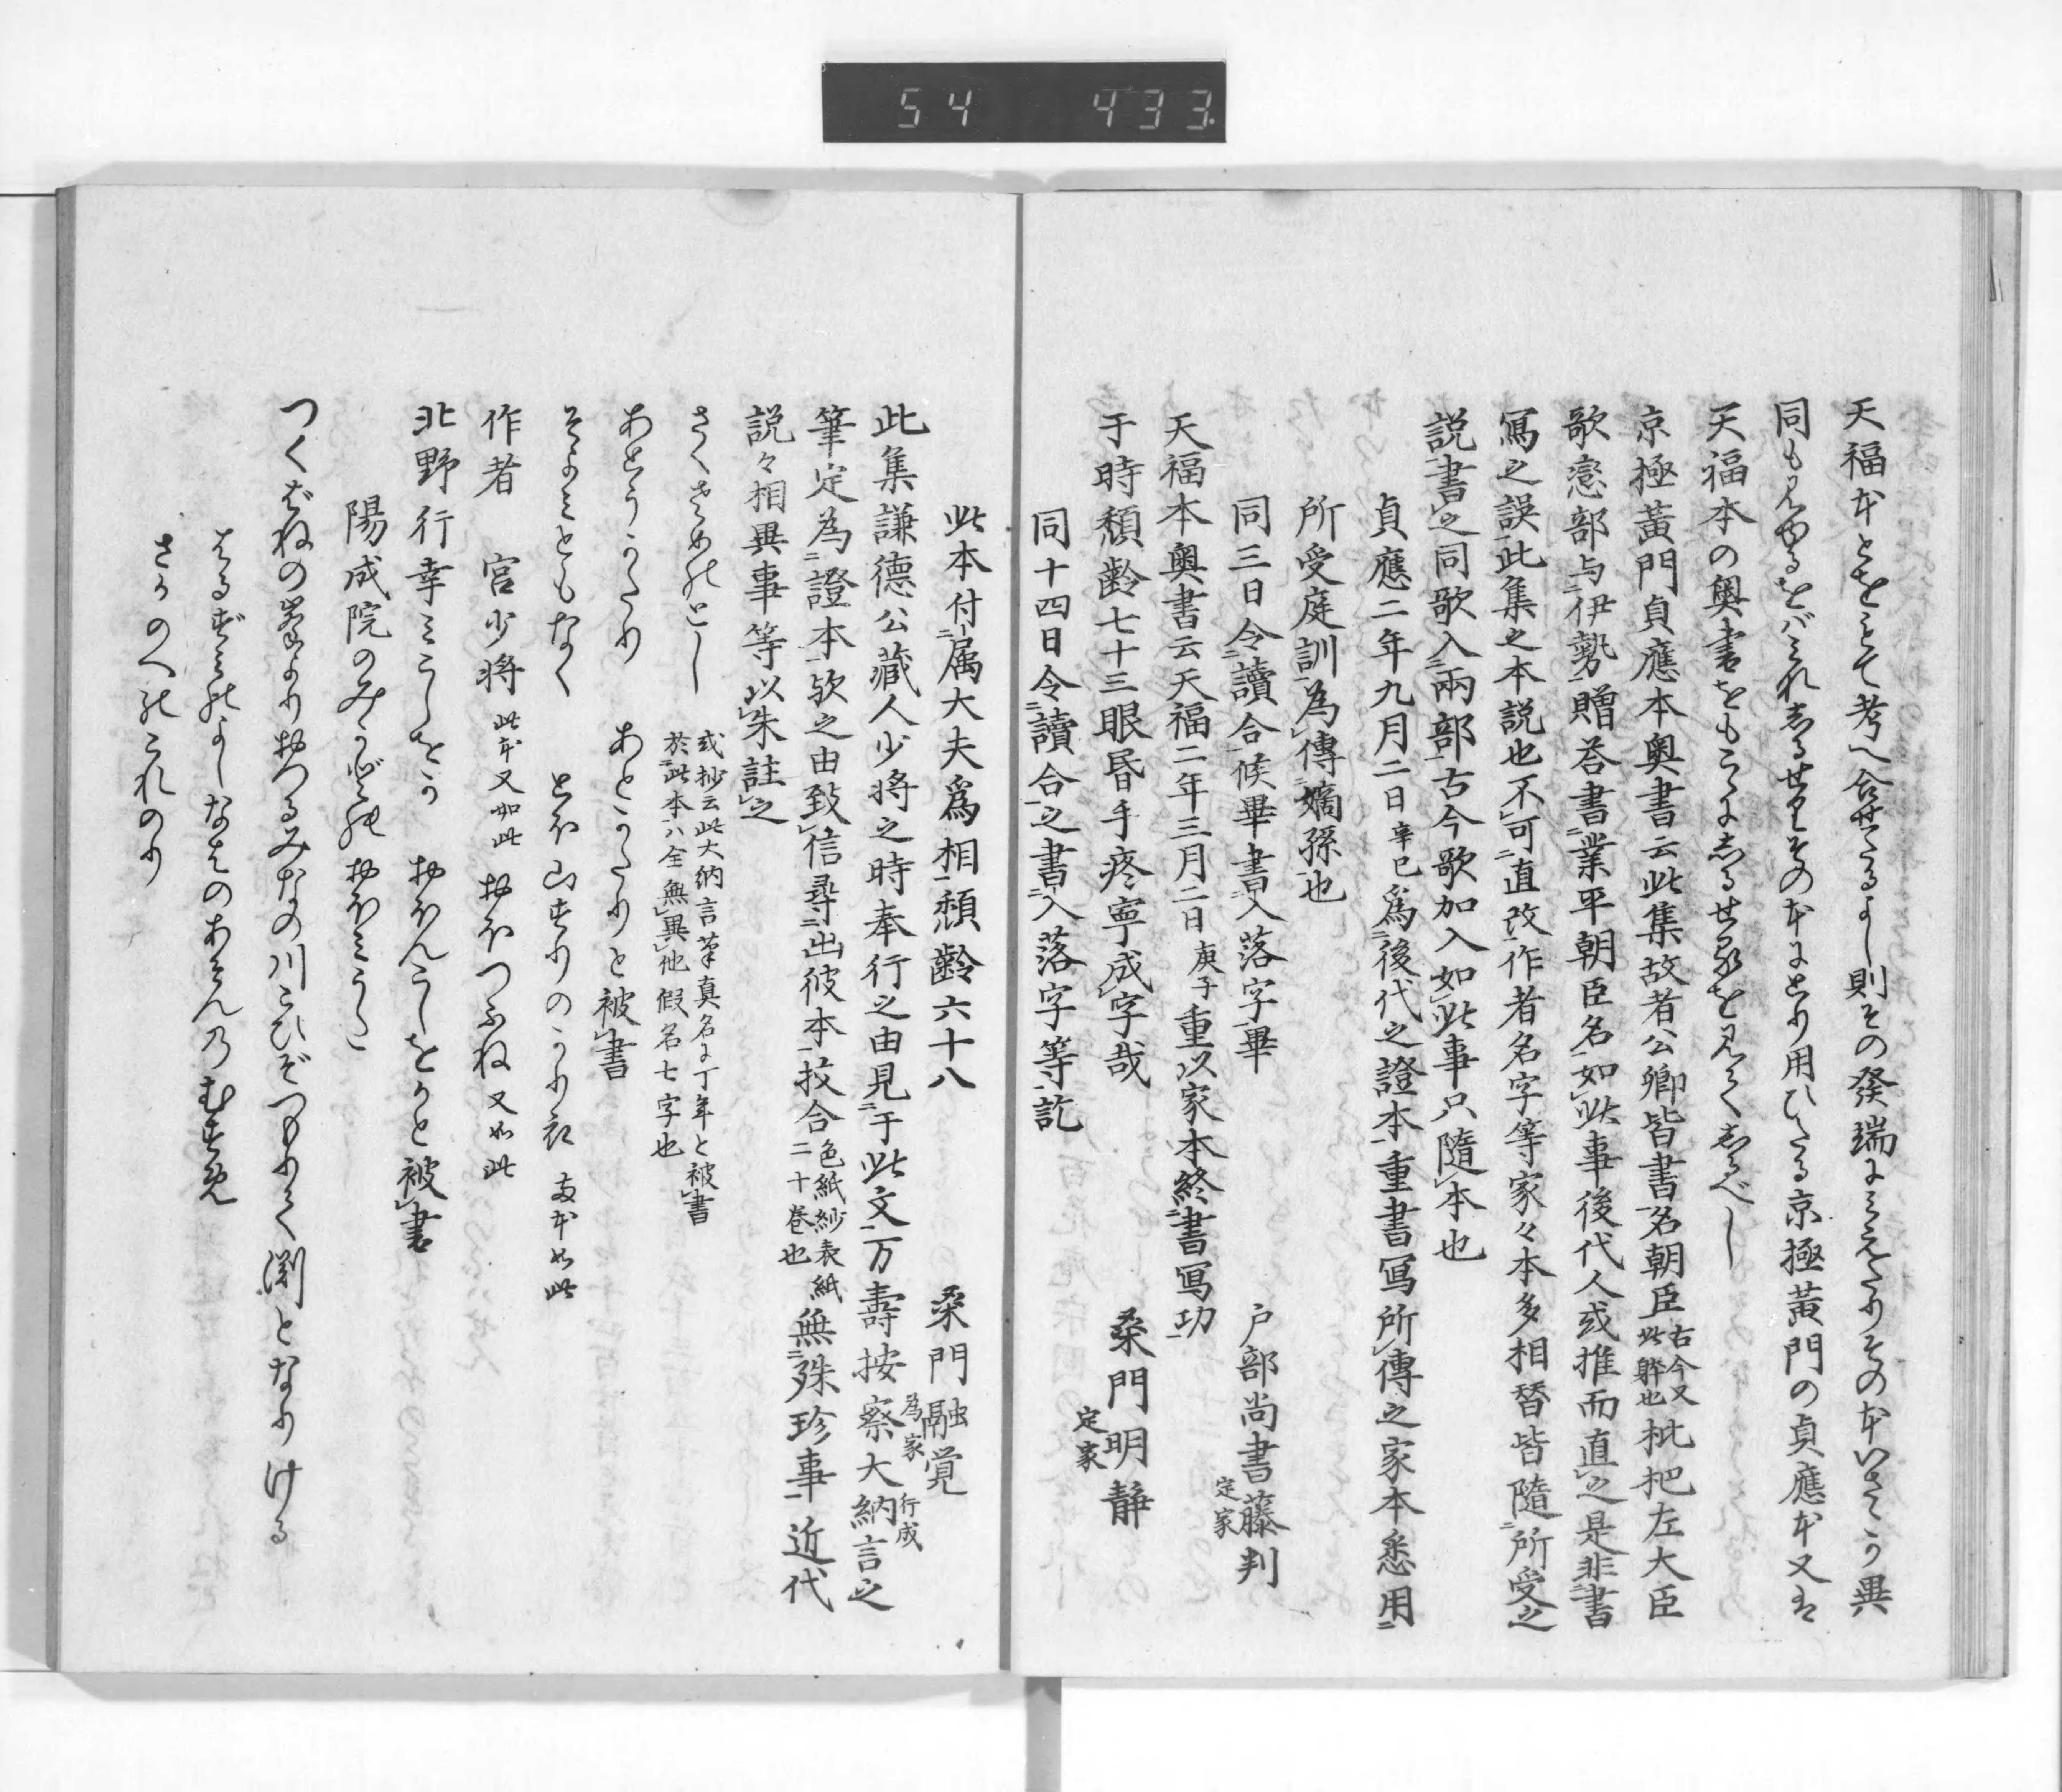 54 433
天福本とをもて考へ合せたるよし則その發端にみえたりその本いさゝか異
同も見ゆるをバこれしる せりその本にとり用ひたる京極黄門の貞應本又は
天福本の奥書をもこゝにしるせるを見てしるべし
京極黄門貞應本奥書云此集故者公卿皆書名朝臣古今又此躰也枇杷左大臣
歌戀部与伊勢贈荅書業平朝臣名如此事後代人或推而直之是非書
寫之誤此集之本説也不可直改作者名字等家々本多相替皆隨所受之
説書之同歌入兩部古今歌加入如此事只隨本也
貞應二年九月二日辛巳爲後代之證本重書寫所傳之家本悉用
所受庭訓為傳嫡孫也
同三日令讀合候畢書入落字畢
戸部尚書藤判
定家
天福本奥書云天福二年三月二日庚子重以家本終書寫功
于時頽齢七十三眼昏手疼寧成字哉
桑門明静
定家
同十四日令讀合之書入落字等訖
此本付属大夫爲相頽齢六十八
桑門融覚
為家
此集謙徳公藏人少将之時奉行之由見于此文万壽按察大納言之
行成
筆定為證本欤之由致信尋出彼本挍合色紙紗表紙二十巻也無殊珍事近代
説々相異事等以朱註之
さくさめのとし 或抄云此大納言筆真名に丁年と被書
於此本ハ全無異他假名七字也
あとうかたり あとかたりと被書
そよみともなく とほ山すりのかり衣 両本如此
作者 宮少将 此本又如此 おほつふね 又如此
北野行幸みこしをか おほんこしをかと被書
陽成院のみかどの おほみうた
つくばねの峯よりおつるみなの川こひぞつもりて渕となりける
はるずみのよしなはのあそんのむすめ
さかのへのこれのり